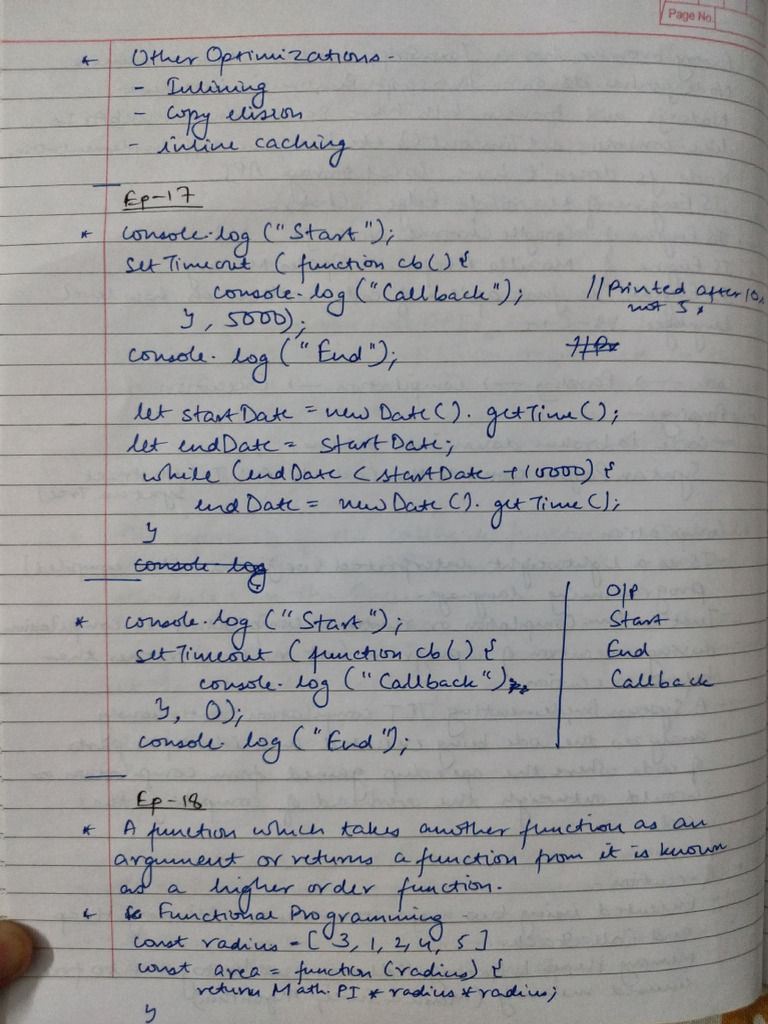 Page No.
* Other Optimizations -
- Inlining
- Copy elision
- inline caching
Ep-17
* console.log ("Start");
setTimeout ( function cb() {
console.log ("Callback"); // Printed after 10s
not 5s
}, 5000);
console.log ("End");
let startDate = new Date().getTime();
let endDate = startDate;
while (endDate < startDate + 10000) {
endDate = new Date().getTime();
}
console log
O/P
* console.log ("Start"); Start
setTimeout ( function cb() { End
console.log ("Callback"); Callback
}, 0);
console.log ("End");
Ep-18
* A function which takes another function as an
argument or returns a function from it is known
as a higher order function.
* Functional Programming
const radius = [ 3, 1, 2, 4, 5 ]
const area = function (radius) {
return Math.PI * radius * radius;
}